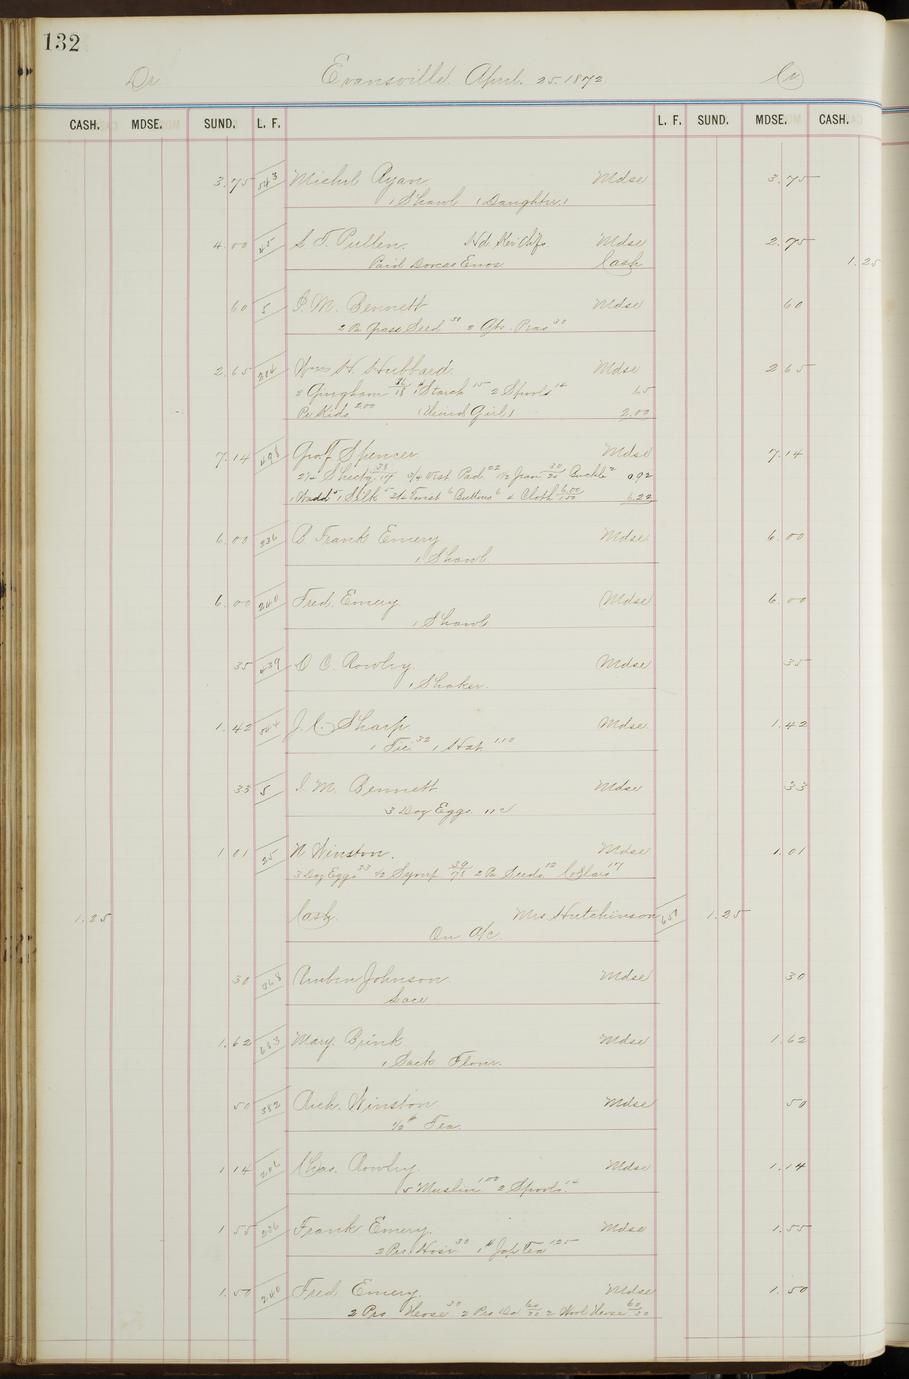 132
Dr Evansville April. 25. 1872 Cr
CASH. MDSE. SUND. L. F. L. F. SUND. MDSE. CASH.
3.75 543 Michel Ryan Mdse 3.75
1 Shawl (Daughter)
4.00 45 S. T. Pullen. Hd Ker Chfs Mdse 2.75
Paid Cash 1.25
60 5 I. M. Bennett Mdse 60
2 lb Grass Seed 30 2 Qts. Peas 30
2.65 214 Wm H. Hubbard Mdse 2.65
2 Gingham 36/18 1# Starch 15 2 Spools 14 65
Pr Kids 2.00 (Hired Girl) 2.00
7.14 498 Spencer Mdse 7.14
2 1/4 Sheetg 38/17 3/4 Vest Pad 22 1/2 Jean 20 Buckle 2 0.92
1 Wadd 5 1 Silk 5 Twist 6 Buttons 6 4 Cloth 6.00/1.50 6.22
6.00 236 B Frank Emery Mdse 6.00
1 Shawl
6.00 240 Fred. Emery Mdse 6.00
1 Shawl
35 439 D C. Rowley. Mdse 35
1 Shaker.
1.42 544 J. C. Sharp Mdse 1.42
1 Tie 32 1 Hat 110
33 5 I. M. Bennett Mdse 33
3 Doz Eggs. 11c
1 01 25 N Winston. Mdse 1.01
3 Doz Eggs 33 1/2 Syrup 39/78 2 lb Seeds 12 Collars 17
1.25 Cash. Mrs Hutchinson 650 1.25
On A/c.
30 568 Johnson Mdse 30
Lace
1.62 683 Mary. Brink Mdse 1.62
1 Sack Flour.
50 382 Rich. Winston Mdse 50
1/2 # Tea.
1 14 206 Chas. Rowley. Mdse 1.14
5 Muslin 100 2 Spools 14
1 55 236 Frank Emery. Mdse 1.55
2 Prs Hose 30 1# Jap Tea 125
1.50 240 Fred Emery. Mdse 1.50
2 Prs Hose 30 2 Prs Do 60/30 2 Wool Hose 60/30